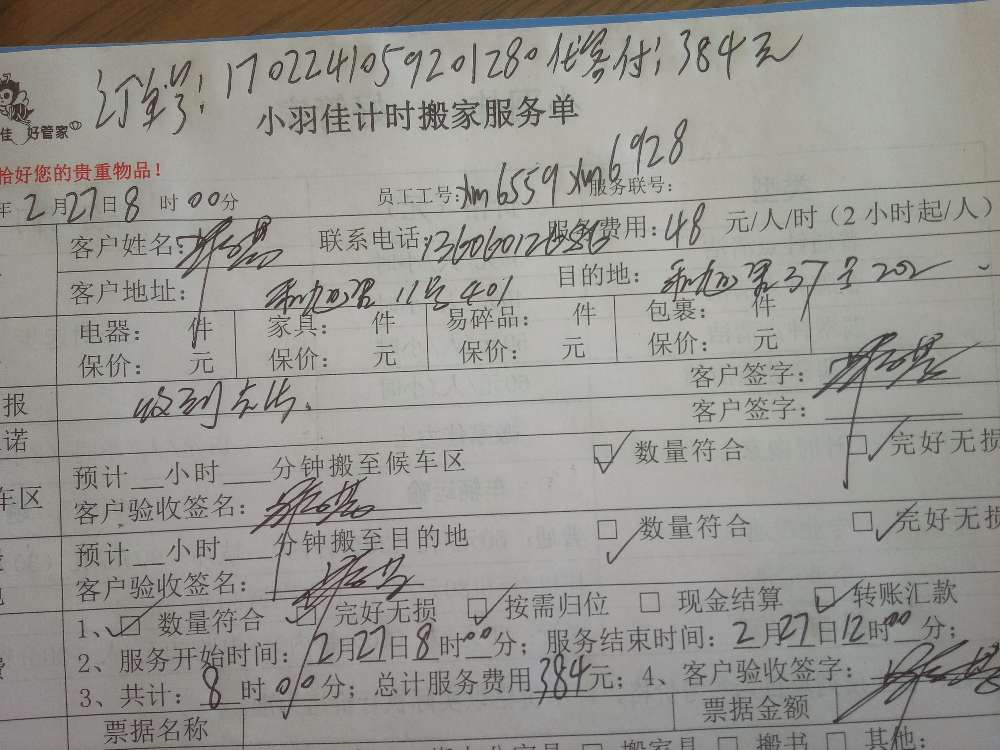 订单号:1702241059201280代客付:384元
佳 好管家
小羽佳计时搬家服务单
恰好您的贵重物品!
年2月27日8时00分 员工工号:xm6559 xm6928 服务联号:
客户姓名: 联系电话: 服务费用:48元/人/时(2小时起/人)
客户地址: 11号401 目的地: 37号202
电器: 件 家具: 件 易碎品: 件 包裹: 件
保价: 元 保价: 元 保价: 元 保价: 元
报 收到 客户签字:
诺 客户签字:
预计__小时___分钟搬至候车区 数量符合 完好无损
车区 客户验收签名:
预计__小时___分钟搬至目的地 数量符合 完好无损
客户验收签名:
1、 数量符合 完好无损 按需归位 现金结算 转账汇款
2、服务开始时间:2月27日8时00分;服务结束时间:2月27日12时00分;
费 3、共计:8时00分;总计服务费用384元;4、客户验收签字:
票据名称 票据金额
搬家具 搬书 其他: